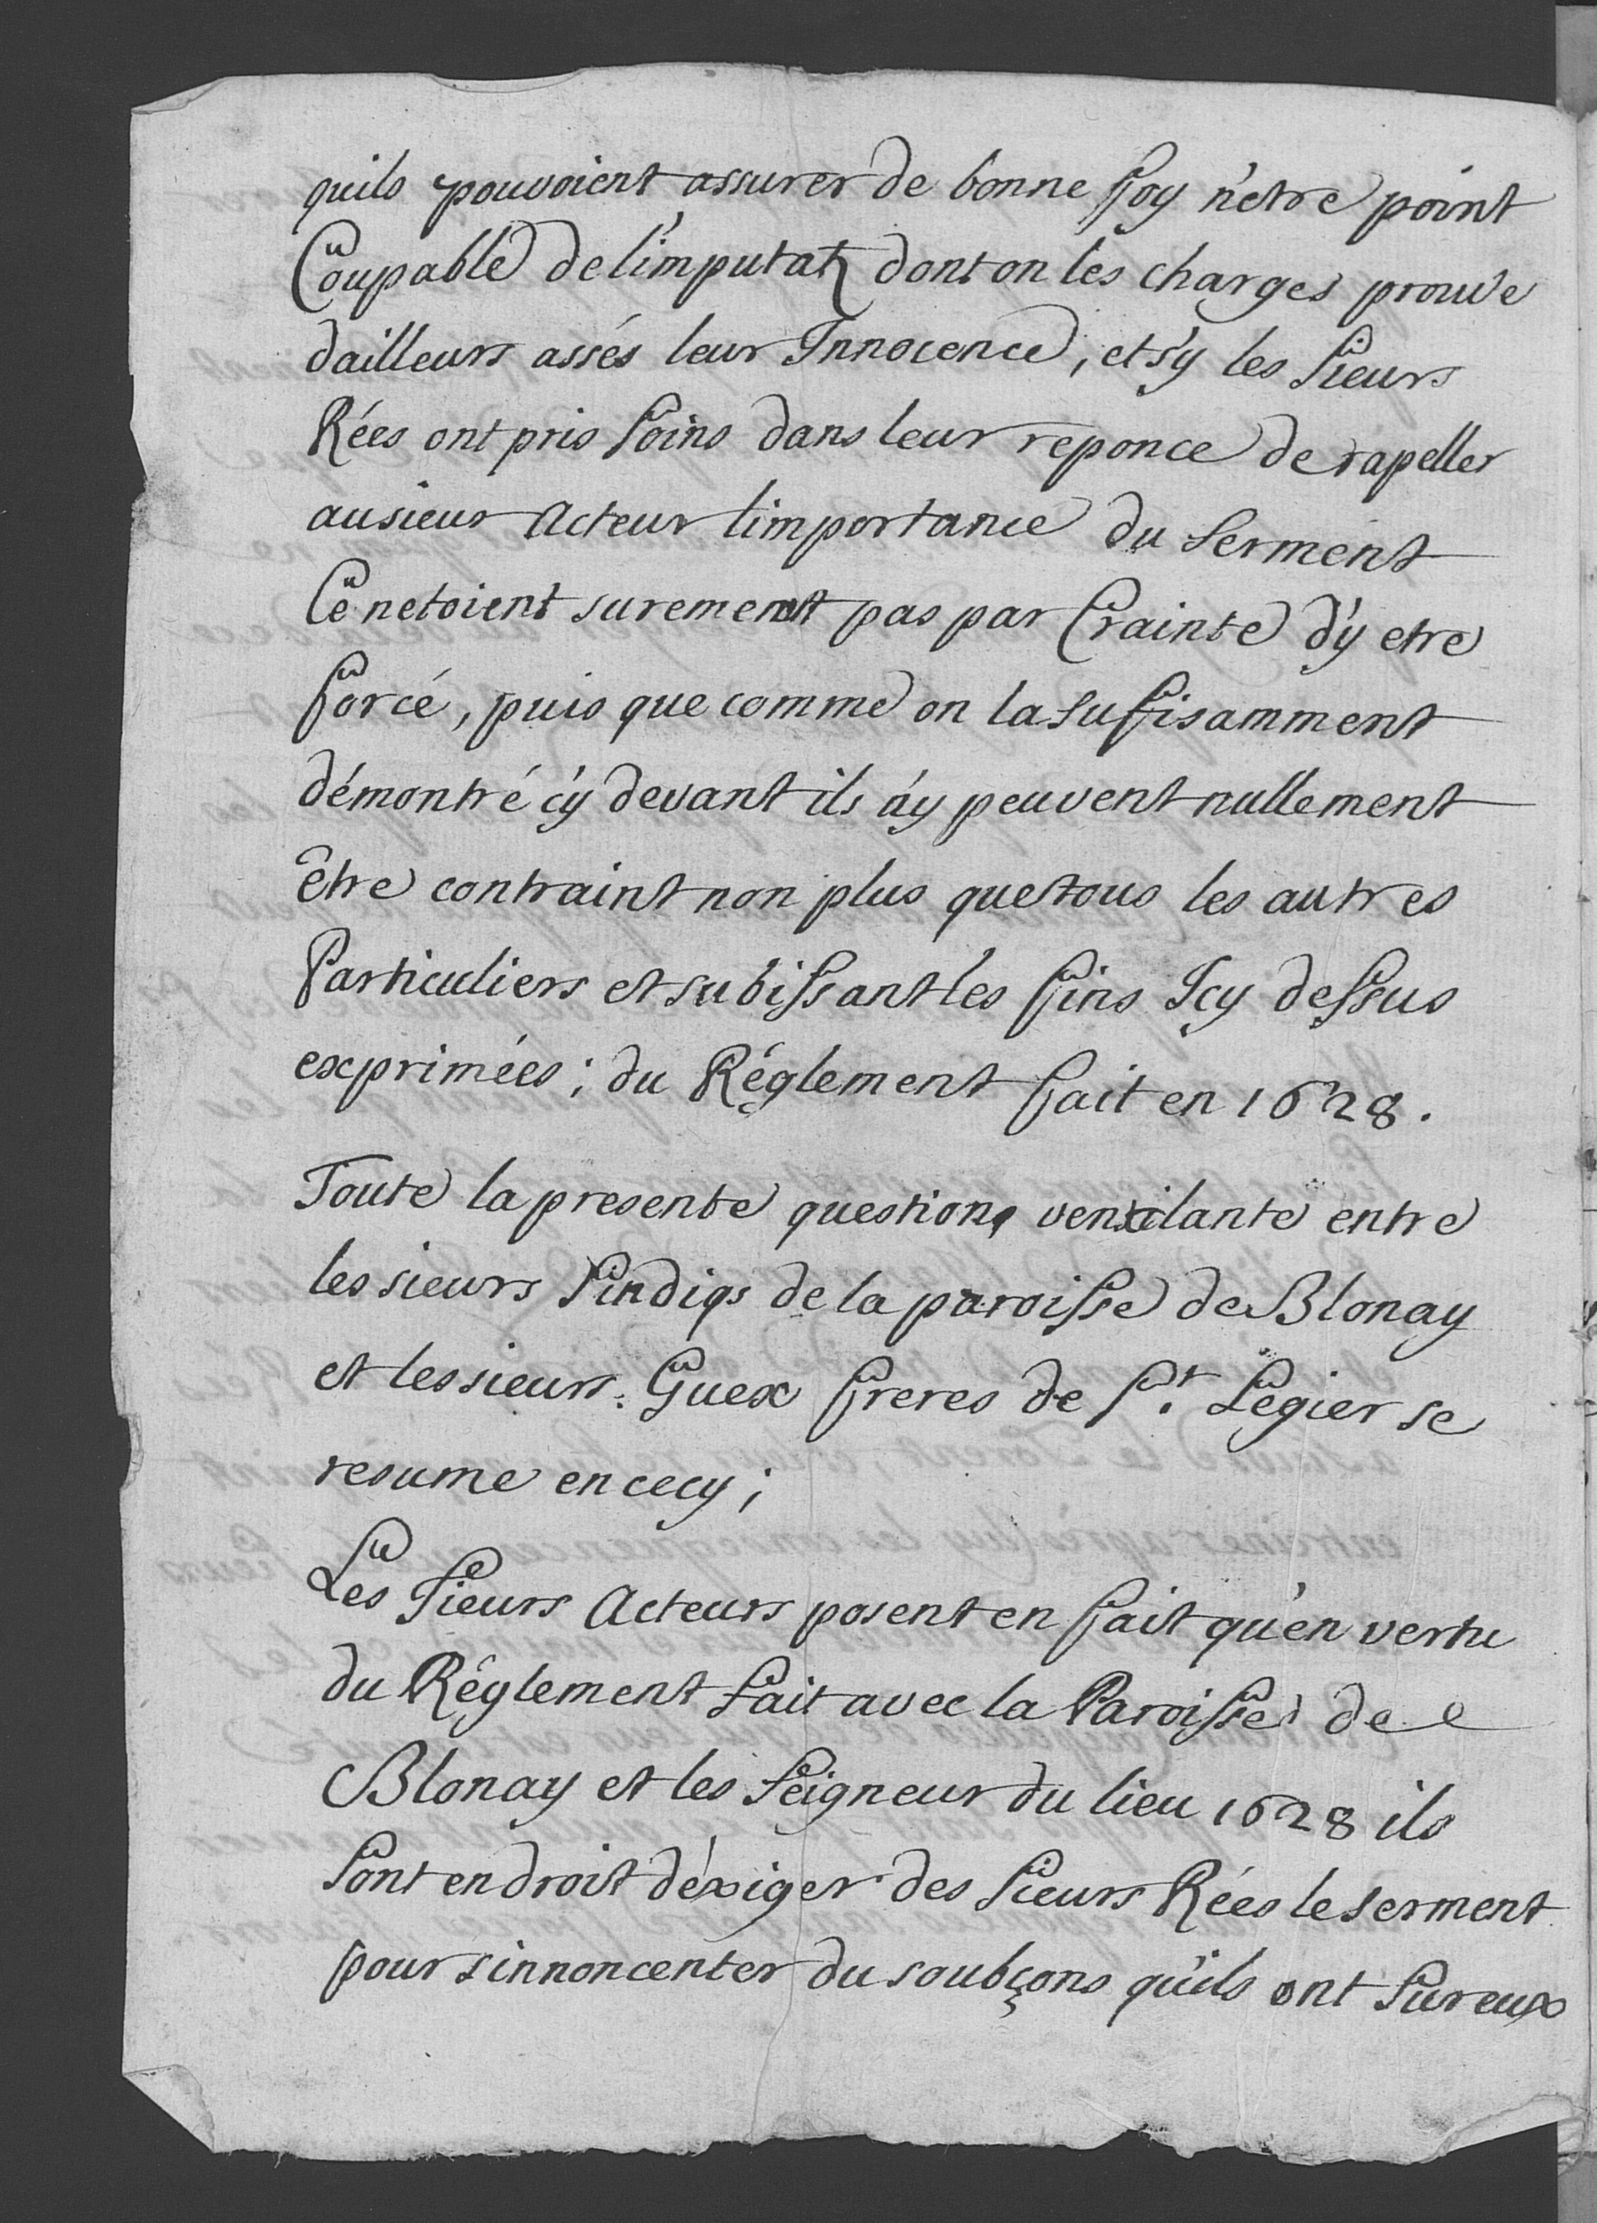 quils pouvoient assurer de bonne foy n'etre point
Coupable de l'imputat dont on les charges prouve
dailleurs assés leur Innocence, et s'y les Sieurs
Rées ont pris Soins dans leur reponce de rapeller
au sieur Acteur limportance du Serment
Ce netoient surement pas par Crainte d'y etre
forcé, puis que comme on la sufisamment
démontré c'y devant ils n'y peuvent nullement
être contraint non plus que tous les autres
Particuliers et subissant les fins Icy dessus
exprimées; du Réglement fait en 1628.
Toute la presente question, ventilante entre
les sieurs Sindiqs de la paroisse de Blonay
et les sieurs Guex freres de St. Legier se
resume en cecy;
Les Sieurs Acteurs posent en fait qu'en vertu
du Réglement fait avec la Paroisse de
Blonay et les Seigneur du lieu 1628 ils
Sont en droit d'éxiger des Sieurs Rées le serment
pour sinnoncenter du soubçons qu'ils ont Sur eux